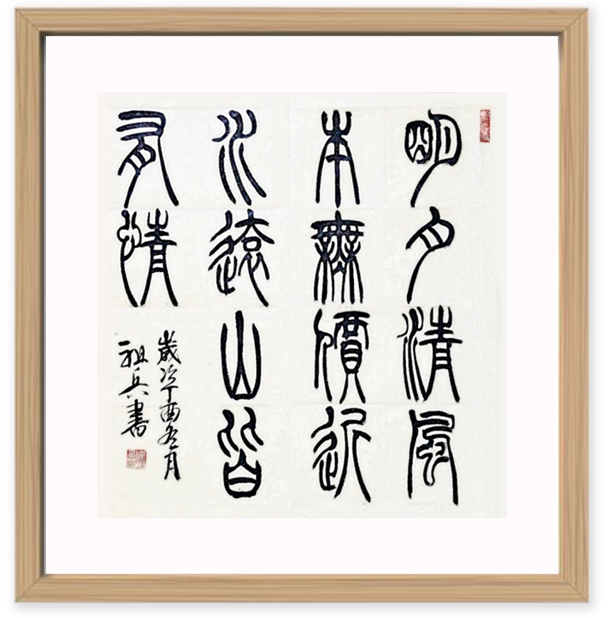 明月清風
本無價近
水遠山皆
有情
歲次丁酉冬月
祖兵書